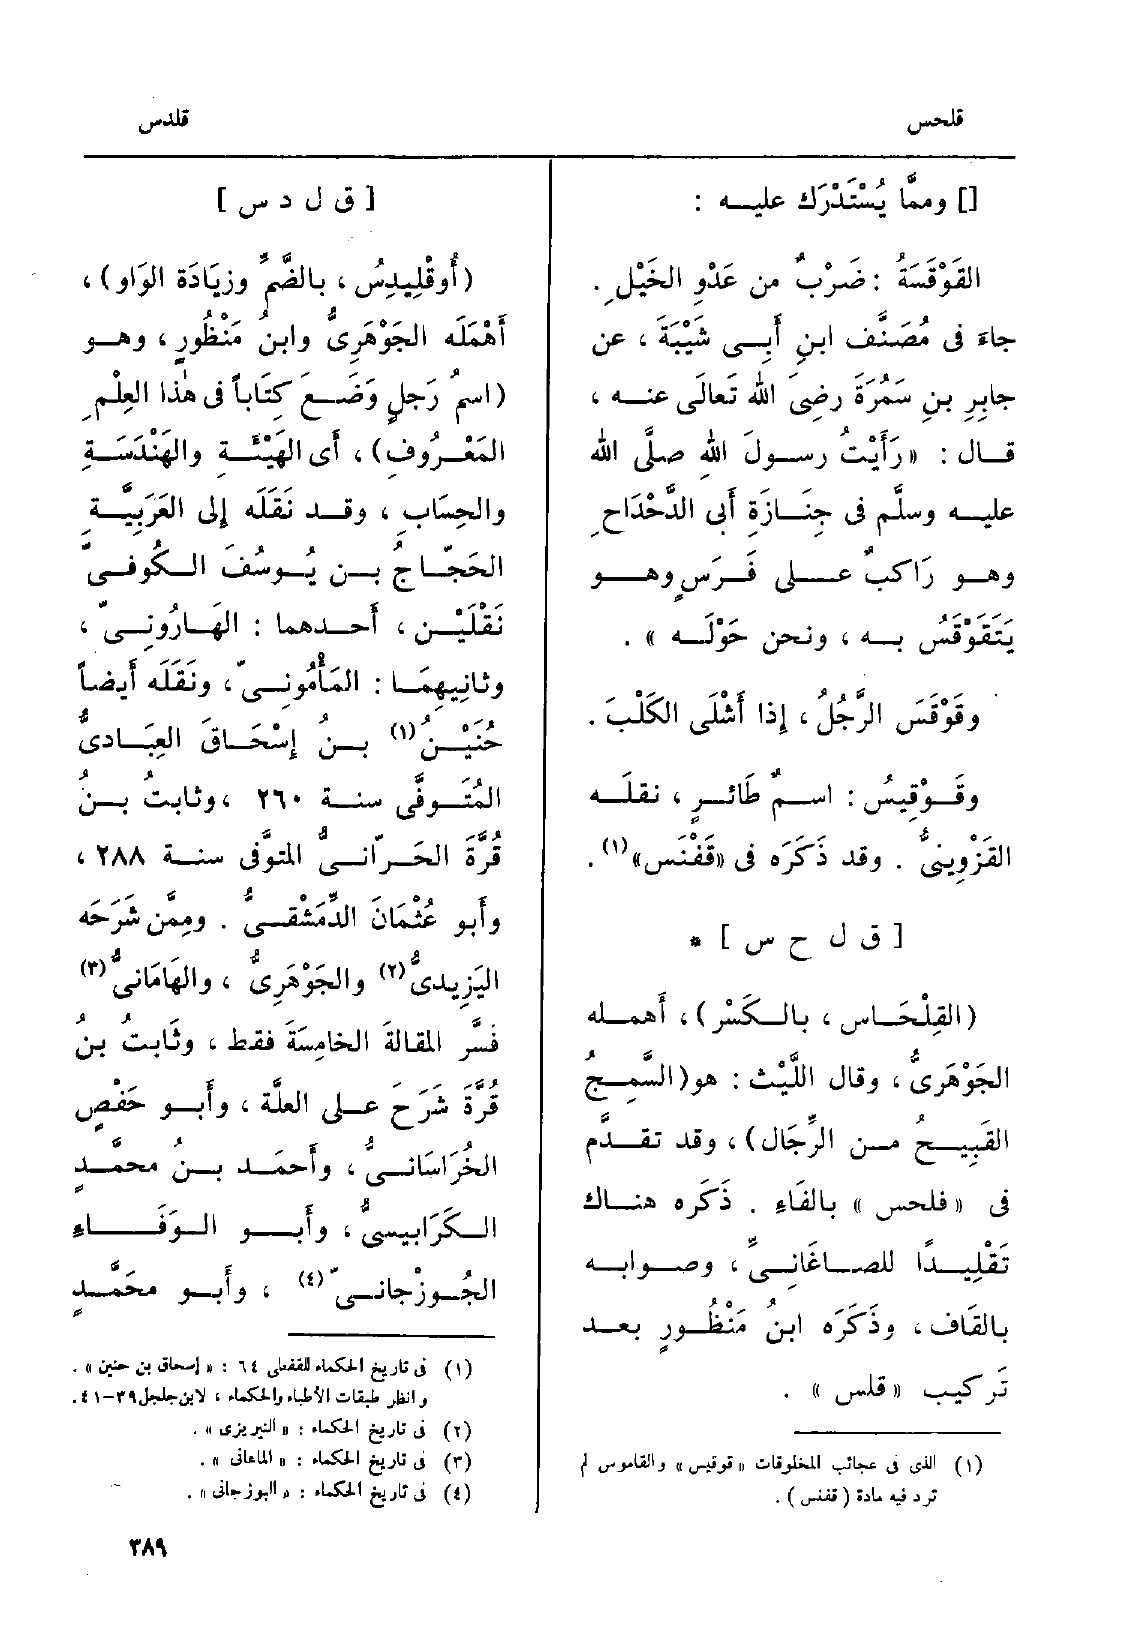 قلحس
قلدس
[] وممَّا يُسْتَدْرَك عليـه :
القَوْقَسَةُ : ضَرْبٌ من عَدْوِ الخَيْلِ .
جاءَ فى مُصَنَّف ابنِ أَبِـى شَيْبَةَ ، عن
جابِرِ بنِ سَمُرَةَ رضِىَ اللهُ تَعالَى عنـه ،
قـال : « رَأَيْتُ رسـولَ اللهِ صلَّى اللهُ
عليـه وسلَّم فى جِنَـازَةِ أَبى الدَّحْدَاحِ
وهـو رَاكبٌ عـلى فَـرَسٍ وهـو
يَتَقَوْقَسُ بـه ، ونحن حَوْلَـه » .
وقَوْقَسَ الرَّجُلُ ، إذا أَشْلَى الكَلْبَ .
وقُـوْقِيسُ : اسـمُ طَائـرٍ ، نقلَـه
القَزْوِينىُّ . وقد ذَكَرَه فى «قَقْنَس»(١) .
[ ق ل ح س ] *
(القِلْحَـاس ، بالـكَسْرِ) ، أَهمـله
الجَوْهَرِىُّ ، وقال اللَّيْث : هو (السَّمِـجُ
القَبِيـحُ مـن الرِّجَال) ، وقد تقـدَّم
فى « فلحس » بالفَاءِ . ذَكَره هنـاك
تَقْلِيـدًا للصـاغَانِـىِّ ، وصـوابـه
بالقَاف ، وذَكَرَه ابنُ مَنْظُـورٍ بعـد
تَركيب « قلس » .
(١) الذى فى عجائب المخلوقات « قوقيس » والقاموس لم
ترد فيه مادة ( قفنس ) .
[ ق ل د س ]
(أُوقْلِيدِسُ ، بالضَّمِّ وزِيَادَة الوَاو) ،
أَهْمَلَه الجَوْهَرِىُّ وابنُ مَنْظُورٍ ، وهـو
(اسمُ رَجلٍ وَضَـع كِتَاباً فى هٰذا العِلْمِ
المَعْـرُوفِ) ، أَى الهَيْئَـةِ والهَنْدَسَـةِ
والحِسَابِ ، وقـد نَقَلَه إلى العَرَبِيَّـةِ
الحَجّـاجُ بـن يُـوسُفَ الـكُوفـىُّ
نَقْلَيْـن ، أَحـدهما : الهَـارُونِـىّ ،
وثانِيهمَـا : المَأْمُونـىّ ، ونَقَلَه أَيضـاً
حُنَيْـنُ(١) بـنُ إِسْحَـاقَ العِبَـادىُّ
المُتَـوفَّى سنـة ٢٦٠ ، وثابتُ بـنُ
قُرَّةَ الحَـرّانـىُّ المتوَفَّى سنـة ٢٨٨ ،
وأَبو عُثْمَانَ الدِّمَشْقـىُّ . ومِمَّن شَرَحَه
اليَزِيدىُّ(٢) والجَوْهَرِىُّ ، والهَامَانىُّ(٣)
فَسَّر المقالةَ الخامِسَةَ فقط ، وثَابتُ بنُ
قُرَّةَ شَرَحَ عـلى العلَّة ، وأَبـو حَفْصٍ
الخُرَاسَانـىُّ ، وأَحمَـد بـنُ محمَّـدٍ
الـكَرَابيـسىُّ ، وأَبـو الـوَفَـاء
الجُـوزْجانـىّ(٤) ، وأَبـو محَمَّـدٍ
(١) فى تاريخ الحكماء للقفطى ٦٤ : « إسحاق بن حنين » .
وانظر طبقات الأطباء والحكماء ، لابن جلجل ٣٩-٤١ .
(٢) فى تاريخ الحكماء : « النيريزى » .
(٣) فى تاريخ الحكماء : « الماهانى » .
(٤) فى تاريخ الحكماء : « البوزجانى » .
٣٨٩